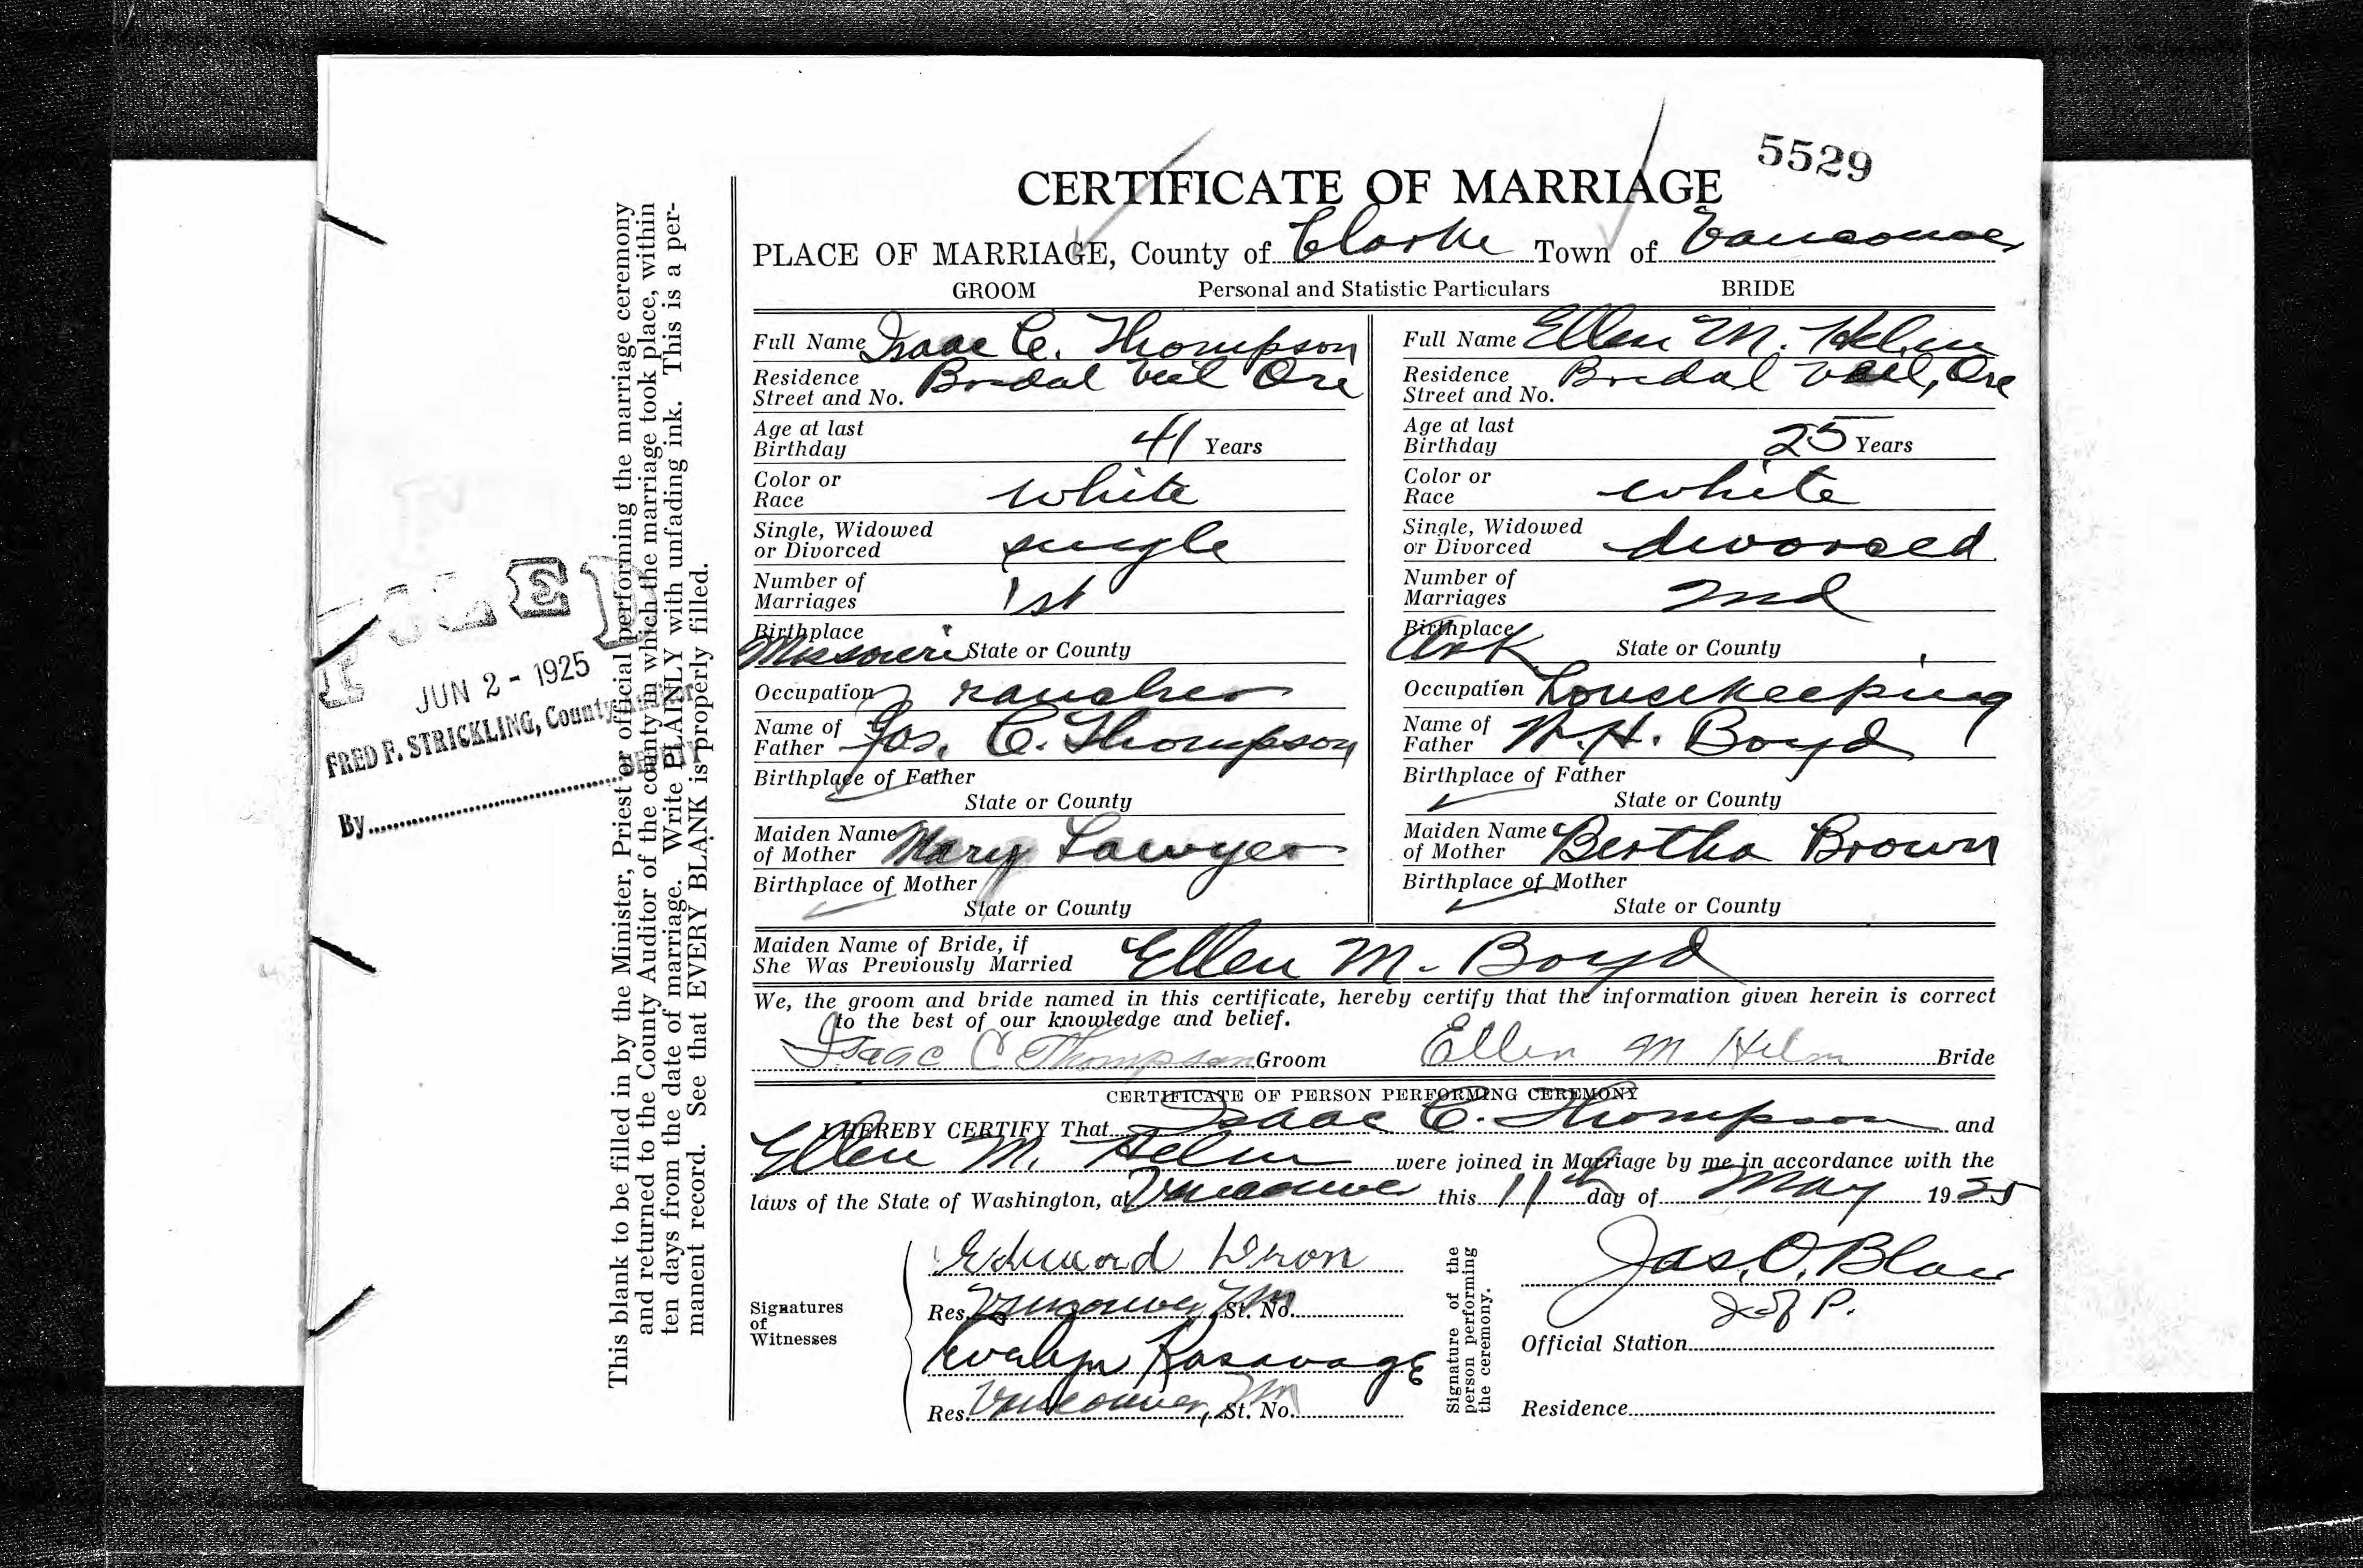 5529
CERTIFICATE OF MARRIAGE
PLACE OF MARRIAGE, County of Clarke Town of Vancouver
GROOM Personal and Statistic Particulars BRIDE
Full Name Isaac C. Thompson
Residence Street and No. Bridal Veil Ore
Age at last Birthday 41 Years
Color or Race white
Single, Widowed or Divorced single
Number of Marriages 1st
Birthplace Missouri State or County
Occupation rancher
Name of Father Jas. C. Thompson
Birthplace of Father
State or County
Maiden Name of Mother Mary Sawyer
Birthplace of Mother
State or County
Full Name Ellen M. Helm
Residence Street and No. Bridal Veil, Ore
Age at last Birthday 25 Years
Color or Race white
Single, Widowed or Divorced divorced
Number of Marriages 2nd
Birthplace Ark State or County
Occupation Housekeeping
Name of Father H. Boyd
Birthplace of Father
State or County
Maiden Name of Mother Bertha Brown
Birthplace of Mother
State or County
Maiden Name of Bride, if
She Was Previously Married Ellen M. Boyd
We, the groom and bride named in this certificate, hereby certify that the information given herein is correct
to the best of our knowledge and belief.
Isaac C Thompson Groom Ellen M Helm Bride
CERTIFICATE OF PERSON PERFORMING CEREMONY
I HEREBY CERTIFY That Isaac C. Thompson and
Ellen M. Helm were joined in Marriage by me in accordance with the
laws of the State of Washington, at Vancouver this 11th day of May 1925
Signatures
of
Witnesses
Edward
Res. Vancouver, St. No.
Evelyn Kasavage
Res. Vancouver, St. No.
Signature of the
person performing
the ceremony.
Jas. O. Blair
J of P.
Official Station
Residence
This blank to be filled in by the Minister, Priest or official performing the marriage ceremony
and returned to the County Auditor of the county in which the marriage took place, within
ten days from the date of marriage. Write PLAINLY with unfading ink. This is a per-
manent record. See that EVERY BLANK is properly filled.
FILED
JUN 2 - 1925
FRED F. STRICKLING, County
DEPUTY
By